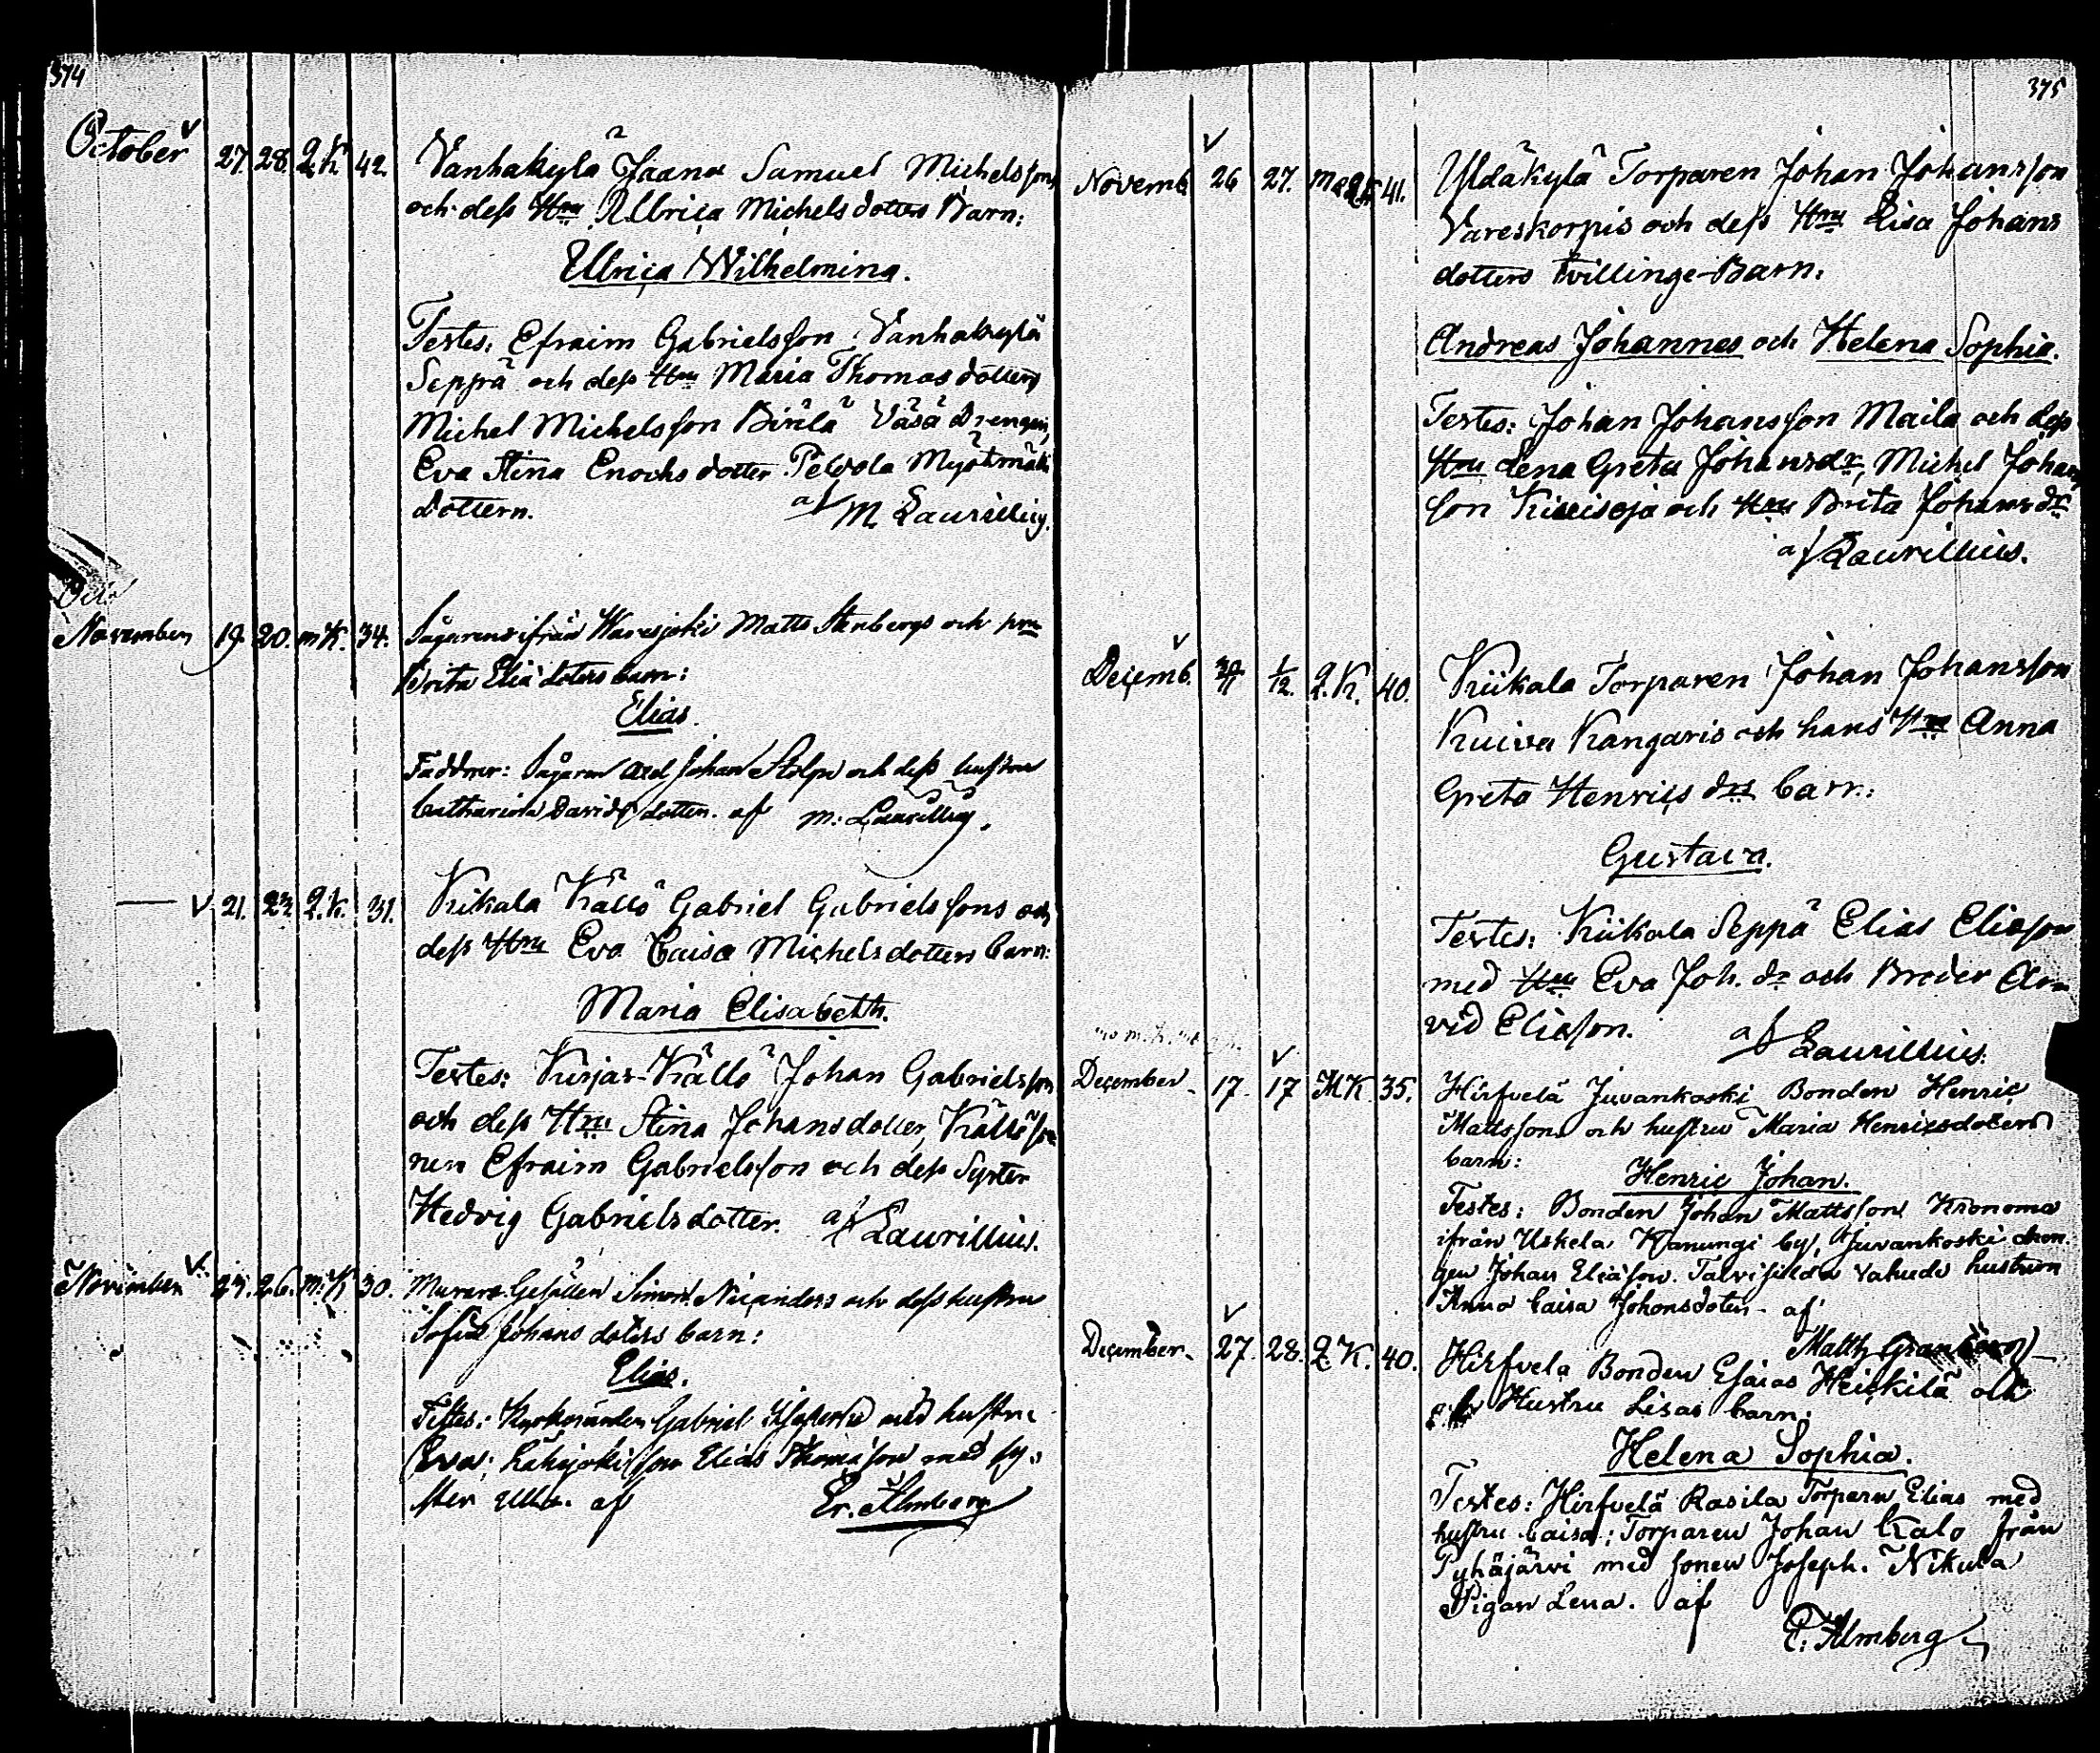 374
October 27. 28. Q.K. 42. Vanhakylä Jaana Samuel Michelssons
och dess Hru Ulbrica Michelsdotters Barn:
Ulrica Wilhelmina.
Testes: Efraim Gabrielsson Vanhakylä
Seppä och dess Hru Maria Thomasdotter,
Michel Michelsson Väsä Drengen,
Eva Stina Enochsdotter Peldola
dottern. af M. Laurillius.
November 19. 20. m.K. 34. Sågarens ifrån Waresjoki Matts Stenbergs och
Brita Eliædoters barn:
Elias.
Faddrar: Sågaren Axel Johan Stolpe och dess hustru
Catharina Davidsdotter. af M. Laurillius.
21. 23. Q.K. 31. Kiikala Källö Gabriel Gabrielssons och
dess Hru Eva Caisa Michelsdotters barn:
Maria Elisabeth.
Testes: Kurjas-Källö Johan Gabrielsson
och dess Hru Stina Johansdotter, Källö so-
nen Efraim Gabrielsson och dess Syster
Hedvig Gabrielsdotter. af Laurillius.
November 24. 26. m.K. 30. Murare Gesällen Simon Nicanders och dess hustru
Sofia Johansdoters barn:
Elias.
Testes: Gabriel med hustru
Eva; Lähijoki son Elias Thomasson med sy-
ster Ulla. af Er. Almberg
375
Novemb. 26 27. 41. Yldäkylä Torparen Johan Johansson
Vareskorpis och dess Hru Lisa Johans
dotters Tvillinge-Barn:
Andreas Johannes och Helena Sophia.
Testes: Johan Johansson Maila och dess
Hru Lena Greta Johansdr, Michel Johans
son Kiviseja och Hru Brita Johansdr
af Laurillius.
Decemb. 30/11 1/12. Q.K. 40. Kiikala Torparen Johan Johansson
Kuiva Kangaris och hans Hru Anna
Greta Henricsdrs barn:
Gustava.
Testes: Kiikala Seppä Elias Eliasson
med Hru Eva Joh. dr och Broder Ar-
vid Eliasson. af Laurillius.
December 17. 17 M.K. 35. Hirfvelä Juvankoski Bonden Henric
Mattssons och hustru Maria Henricsdoters
barn:
Henric Johan.
Testes: Bonden Johan Mattsson Kronoma
ifrån Uskela Kanungi by, Juvankoski dren-
gen Johan Eliæson. Talvisilda Vahude hustrun
Anna Caisa Johansdoter. af
Matth Granberg
December 27. 28. Q.K. 40. Hirfvela Bonden Esaias Heickilä och
Hustru Lisas barn:
Helena Sophia.
Testes: Hirfvelä Rasila Torparn Elias med
hustru Caisa; Torparen Johan Kalo från
Pyhäjärvi med sonen Joseph. Nikula
Pigan Lena. af
E. Almberg